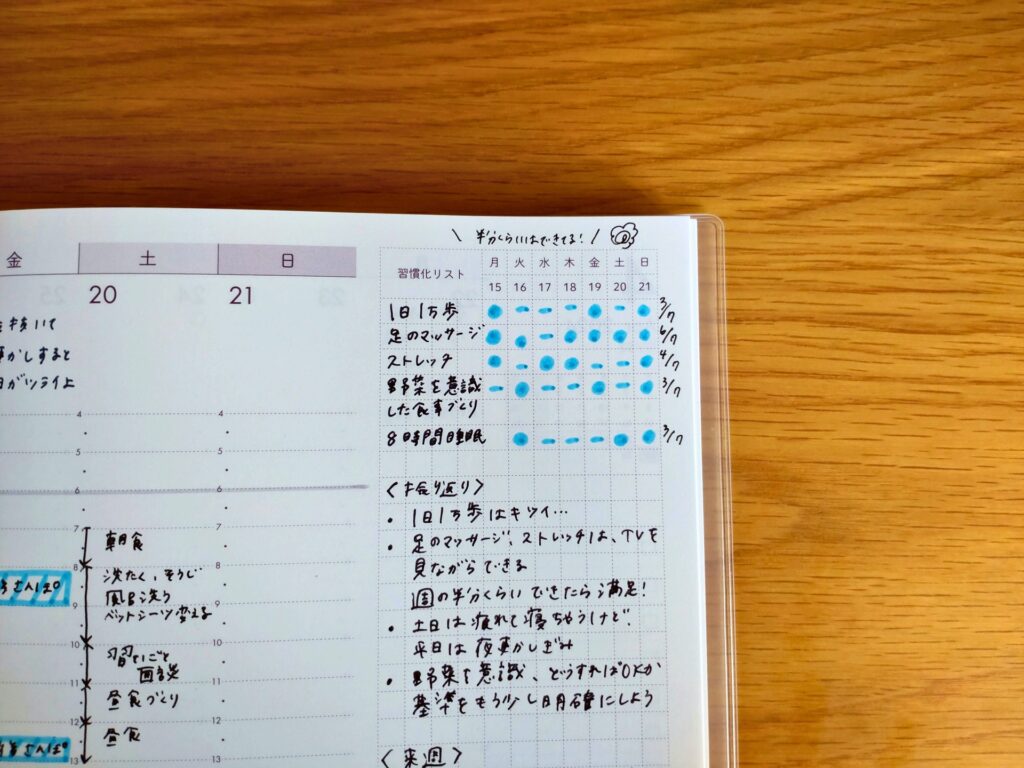 金 土 日
20 21
を抜いて
かしすると
がツライよ
4 4
6 6
7 7
朝食
8 8
洗たく、そうじ
風呂洗う
9 9
ベットシーツ変える
10 10
習いごと
11 11
昼食づくり
12 12
昼食
13 13
\ 半分くらいはできてる! /
習慣化リスト 月 火 水 木 金 土 日
15 16 17 18 19 20 21
1日1万歩 3/7
足のマッサージ 6/7
ストレッチ 4/7
野菜を意識 3/7
した食事づくり
8時間睡眠 3/7
〈ふり返り〉
・1日1万歩はキツイ…
・足のマッサージ、ストレッチは、TVを
見ながらできる
週の半分くらいできたら満足!
・土日は疲れて寝ちゃうけど、
平日は夜更かしぎみ
・野菜を意識、どうすればOKか
基準をもう少し明確にしよう
〈来週〉